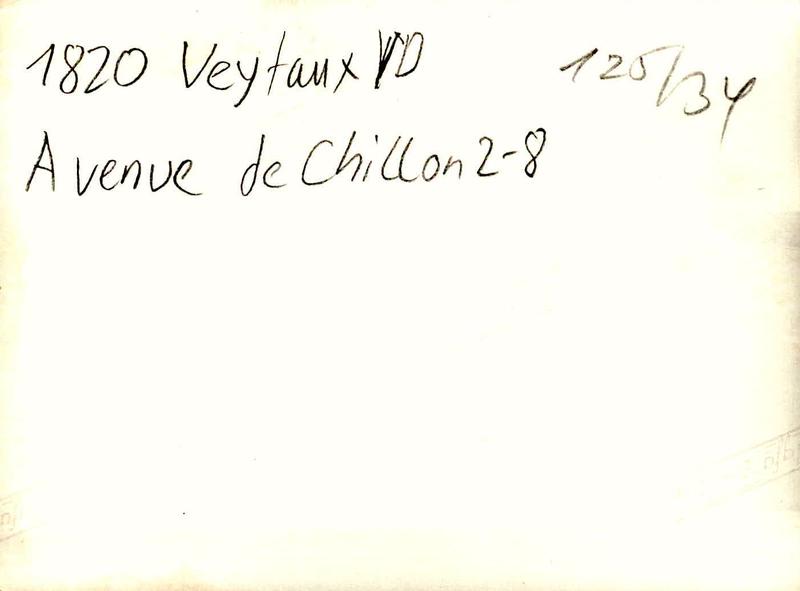 1820 Veytaux VD
125/34
Avenue de Chillon 2-8